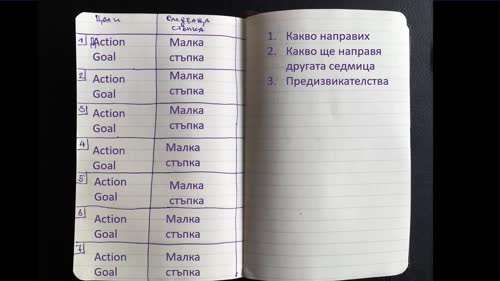 Цели
Следваща
стъпка
1 Action
Goal
Малка
стъпка
2 Action
Goal
Малка
стъпка
3 Action
Goal
Малка
стъпка
4 Action
Goal
Малка
стъпка
5 Action
Goal
Малка
стъпка
6 Action
Goal
Малка
стъпка
7 Action
Goal
Малка
стъпка
1. Какво направих
2. Какво ще направя
другата седмица
3. Предизвикателства